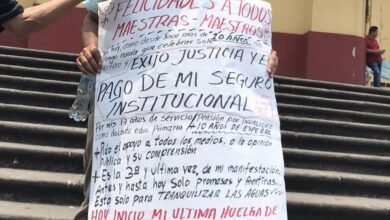 FELICIDADES A TODOS
MAESTRAS - MAESTROS -
Hoy, como desde hace mas de 10 AÑOS no
tengo nada que celebrar Solo
y EXIJO JUSTICIA Y EL
PAGO DE MI SEGURO
INSTITUCIONAL
Por mis 17 años de servicio/Pensión por invalidez
como docente Educ. Primaria +10 AÑOS DE ESPERA
+Pido el apoyo a todos los medios, a la opinión
Publica y su comprensión
+Es la 3ª y ultima vez, de mi manifestación
Antes y hasta hoy Solo promesas y mentiras.
Esto solo para TRANQUILIZAR LAS AGUAS
HOY INICIO MI ULTIMA HUELGA DE